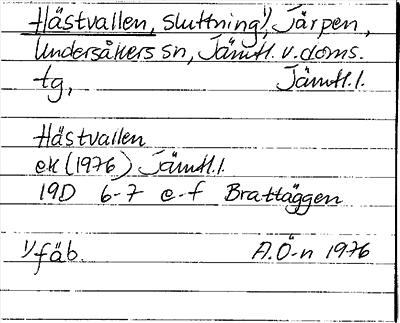 Hästvallen, sluttning¹⁾, Järpen,
Undersåkers sn, Jämtl. v. doms.
tg, Jämtl. l.
Hästvallen
ek (1976) Jämtl. l.
19D 6-7 e-f Brattäggen
¹⁾fäb. A.Ö-n 1976